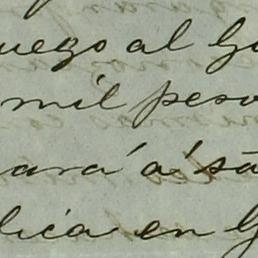 uego al Go
mil peso
ará á sa
lica en G